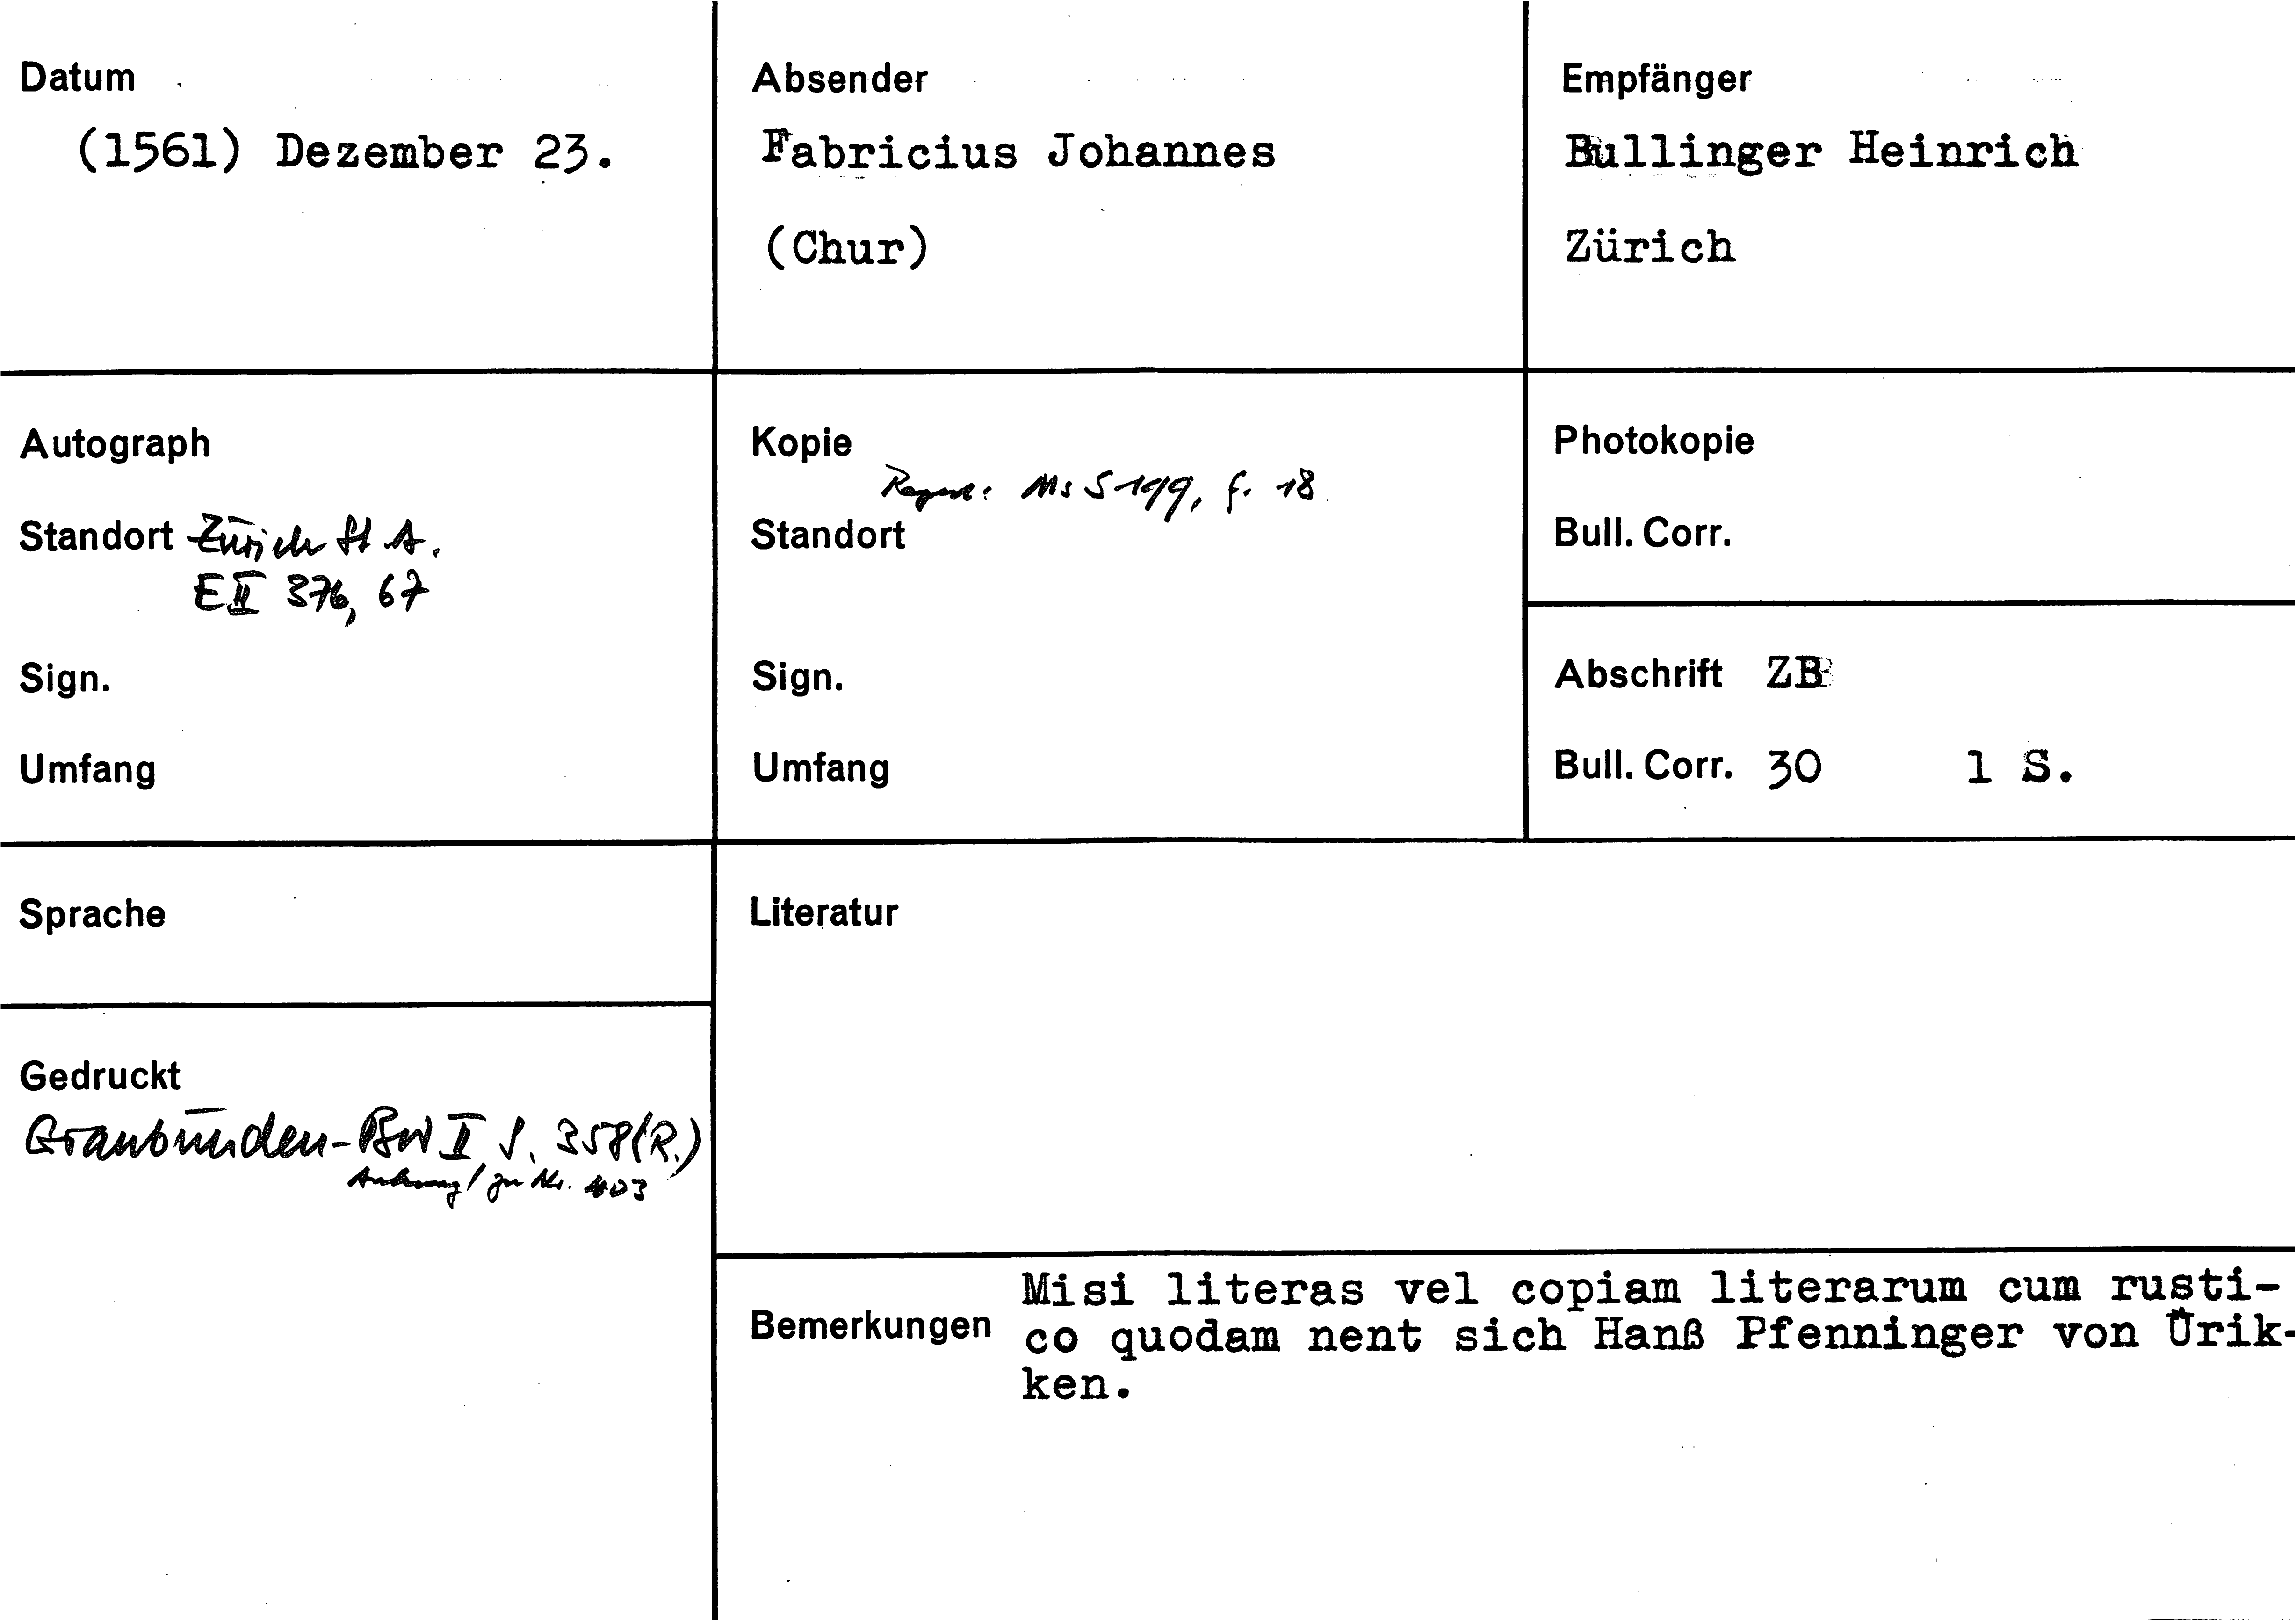 Datum
(1561) Dezember 23.
Absender
Fabricius Johannes
(Chur)
Empfänger
Bullinger Heinrich
Zürich
Autograph
Standort Zürich StA.
E II 376, 67
Sign.
Umfang
Kopie
Regest: Ms S 199, f. 18
Standort
Sign.
Umfang
Photokopie
Bull. Corr.
Abschrift ZB
Bull. Corr. 30 1 S.
Sprache
Literatur
Gedruckt
Graubünden-BW II S. 358 (R.)
Anhang / zu Nr. 403
Bemerkungen
Misi literas vel copiam literarum cum rusti-
co quodam nent sich Hanß Pfenninger von Ürik-
ken.